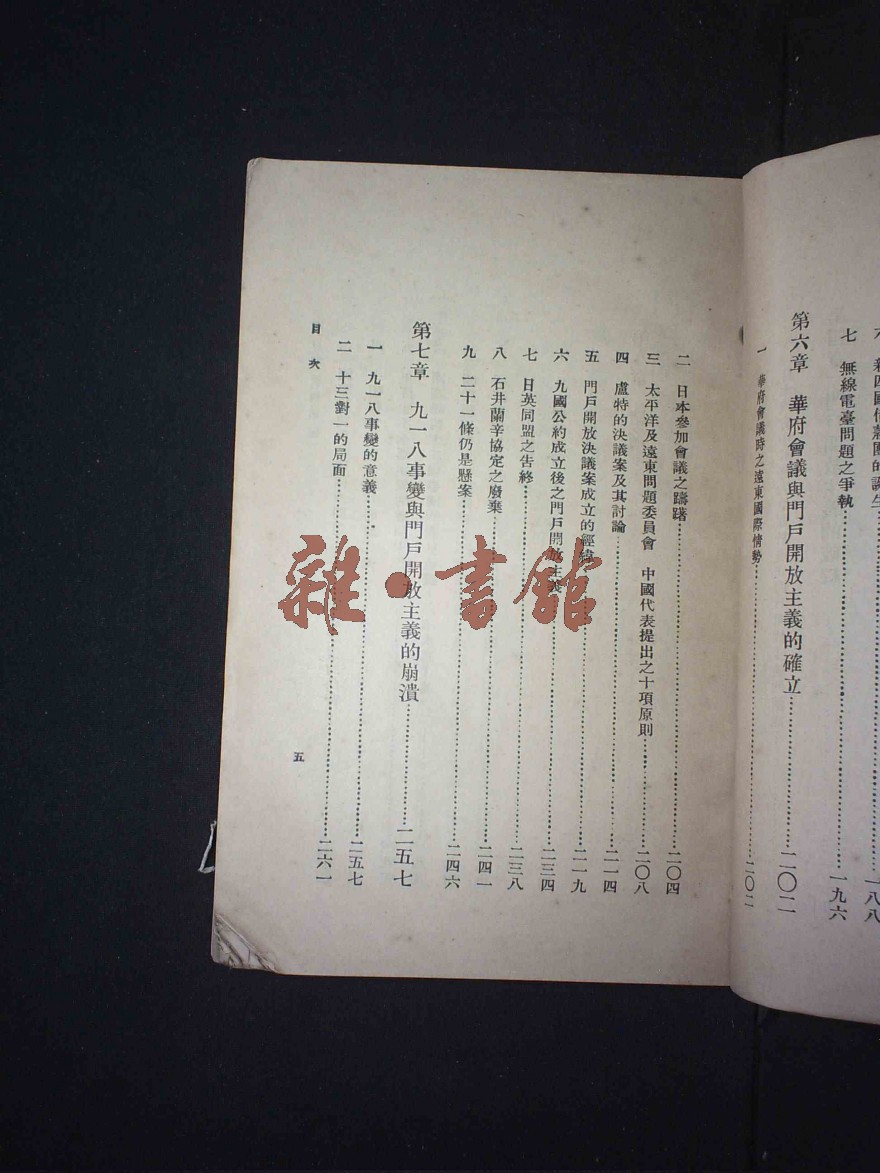 新四國借款團的誕生……一八八
七　無線電臺問題之爭執……一九六
第六章　華府會議與門戶開放主義的確立……二〇二
一　華府會議時之遠東國際情勢……二〇二
二　日本參加會議之躊躇……二〇四
三　太平洋及遠東問題委員會　中國代表提出之十項原則……二〇八
四　盧特的決議案及其討論……二一四
五　門戶開放決議案成立的經緯……二一九
六　九國公約成立後之門戶開放主義……二三四
七　日英同盟之告終……二三八
八　石井藍辛協定之廢棄……二四一
九　二十一條仍是懸案……二四六
第七章　九一八事變與門戶開放主義的崩潰……二五七
一　九一八事變的意義……二五七
二　十三對一的局面……二六一
目次
五
雜·書館